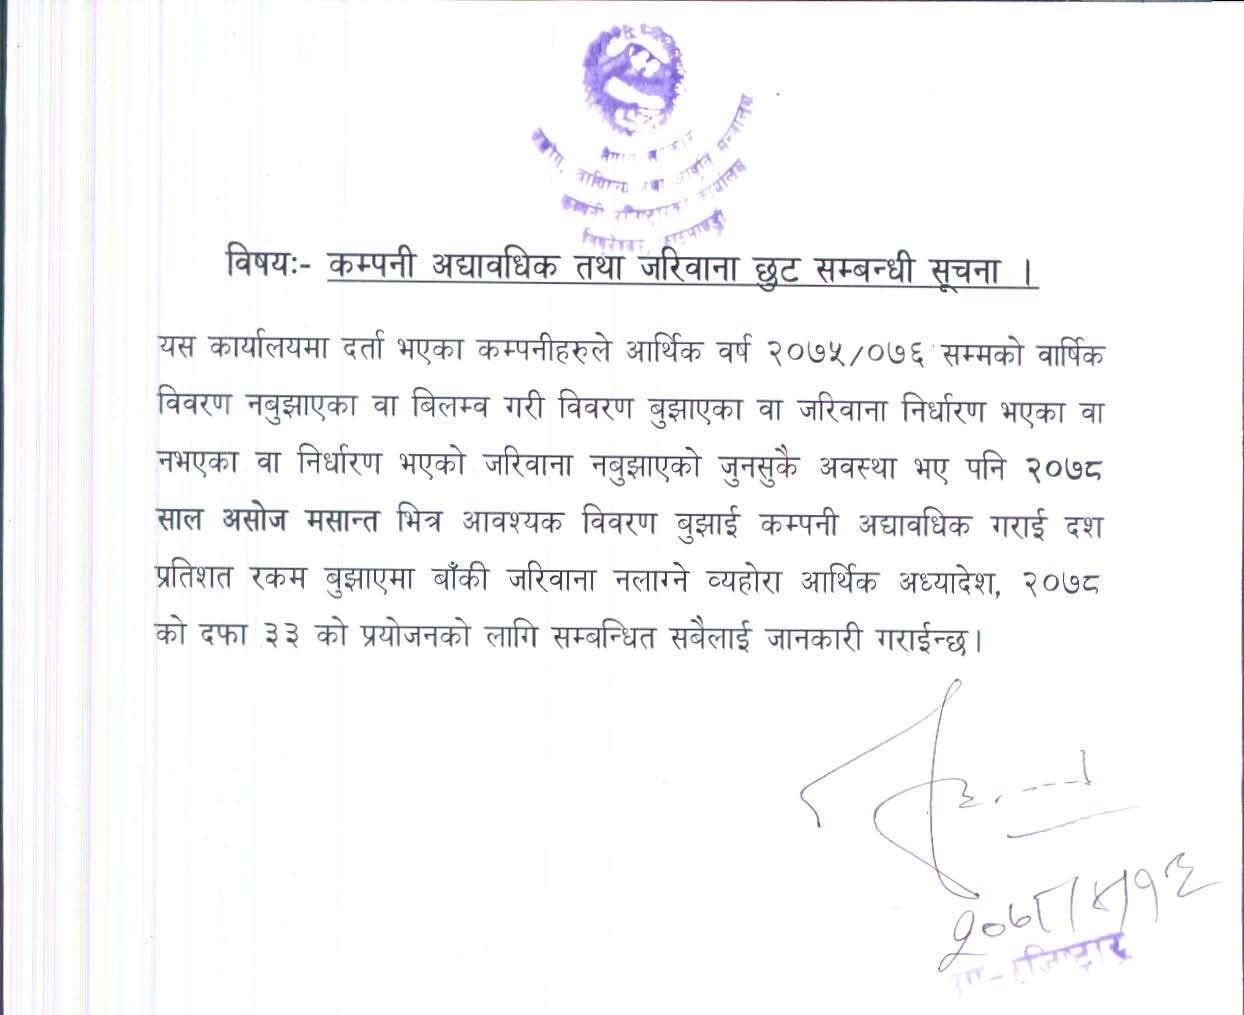 नेपाल सरकार
उद्योग, वाणिज्य तथा आपूर्ति मन्त्रालय
कम्पनी रजिष्ट्रारको कार्यालय
विषयः- कम्पनी अद्यावधिक तथा जरिवाना छुट सम्बन्धी सूचना ।
यस कार्यालयमा दर्ता भएका कम्पनीहरुले आर्थिक वर्ष २०७५/०७६ सम्मको वार्षिक
विवरण नबुझाएका वा बिलम्व गरी विवरण बुझाएका वा जरिवाना निर्धारण भएका वा
नभएका वा निर्धारण भएको जरिवाना नबुझाएको जुनसुकै अवस्था भए पनि २०७८
साल असोज मसान्त भित्र आवश्यक विवरण बुझाई कम्पनी अद्यावधिक गराई दश
प्रतिशत रकम बुझाएमा बाँकी जरिवाना नलाग्ने व्यहोरा आर्थिक अध्यादेश, २०७८
को दफा ३३ को प्रयोजनको लागि सम्बन्धित सबैलाई जानकारी गराईन्छ।
२०७८/४/१३
रजिष्ट्रार